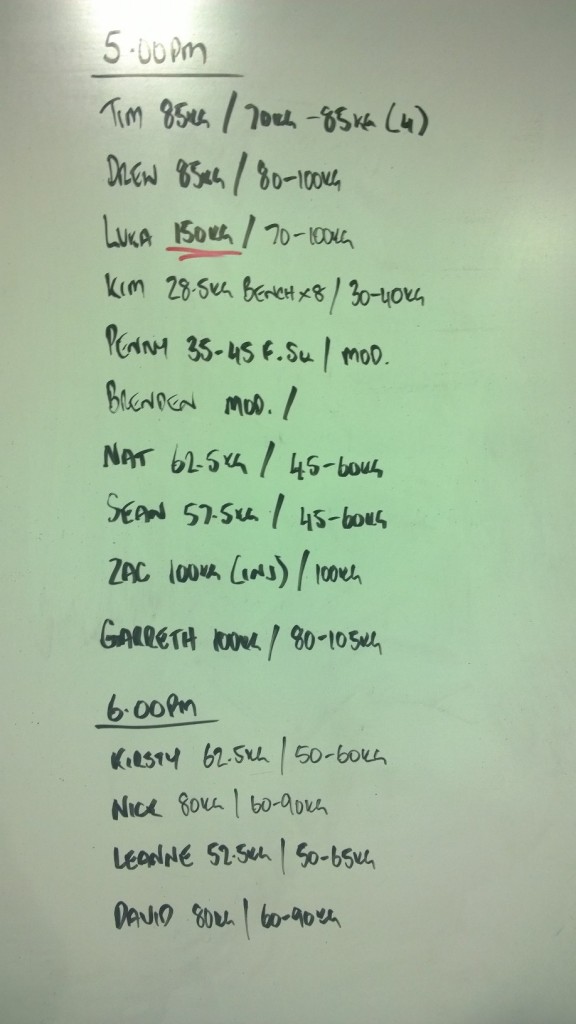 5.00PM
TIM 85KG / 70KG - 85KG (4)
DREW 85KG / 80-100KG
LUKA 150KG / 70-100KG
KIM 28.5KG BENCH x 8 / 30-40KG
PENNY 35-45 F.SQ / MOD.
BRENDEN MOD. /
NAT 62.5KG / 45-60KG
SEAN 57.5KG / 45-60KG
ZAC 100KG (INJ) / 100KG
GARRETH 100KG / 80-105KG
6.00PM
KIRSTY 62.5KG / 50-60KG
NICK 80KG / 60-90KG
LEANNE 52.5KG / 50-65KG
DAVID 80KG / 60-90KG